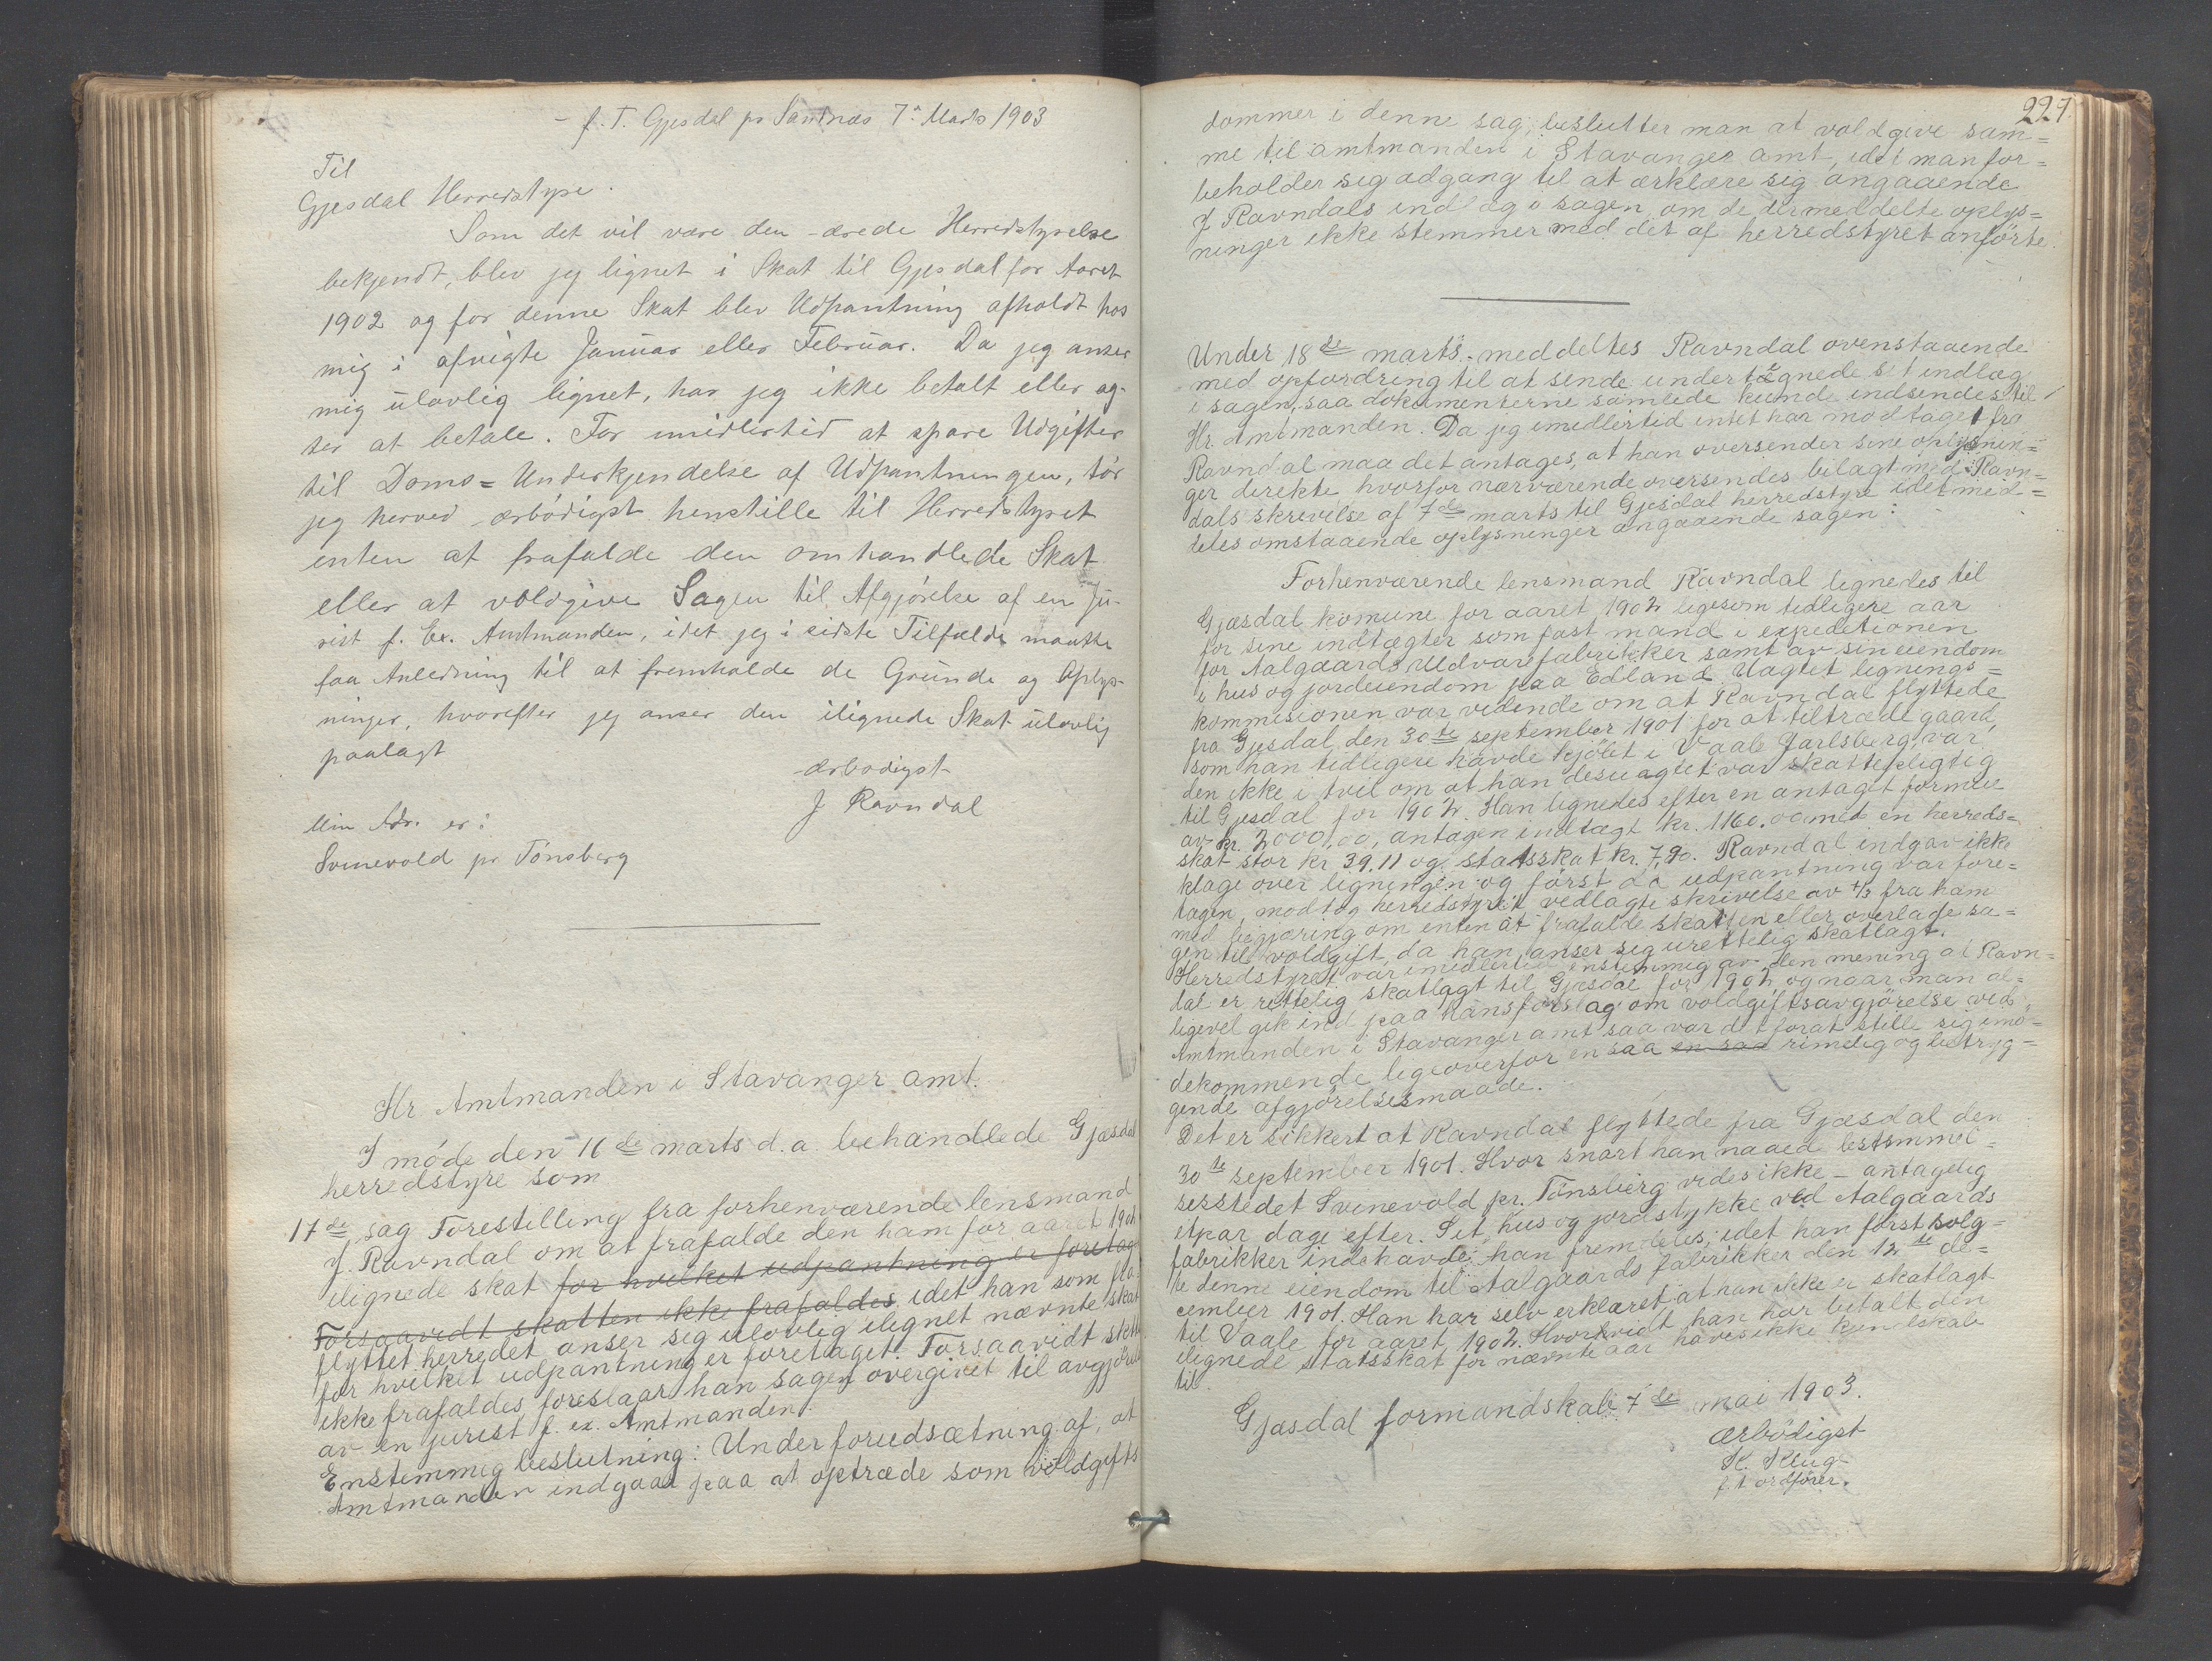 - f. T. Gjesdal pr Sandnæs 7de Marts 1903
Til
Gjesdal Herredstyre.
Som det vil være den ærede Herredstyrelse
bekjendt, blev jeg lignet i Skat til Gjesdal for Aaret
1902 og for denne Skat blev Udpantning afholdt hos
mig i afvigte Januar eller Februar. Da jeg anser
mig ulovlig lignet, har jeg ikke betalt eller ag-
ter at betale. For imidlertid at spare Udgifter
til Doms=Underkjendelse af Udpantningen, tør
jeg herved ærbödigst henstille til Herredstyret
enten at frafalde den omhandlede Skat
eller at voldgive Sagen til Afgjörelse af en Ju-
rist f. Ex. Amtmanden, idet jeg i sidste Tilfælde maatte
faa Anledning til at fremholde de Grunde og Oplys-
ninger, hvorefter jeg anser den ilignede Skat ulovlig
paalagt
Ærbödigst
J Ravndal
Min Adr. er:
Svinevold pr Tönsberg
Hr. Amtmanden i Stavanger amt.
I möde den 16de marts d.a. behandlede Gjæsdal
herredstyre som
17de sag Forestilling fra forhenværende lensmand
J. Ravndal om at frafalde den ham for aaret 1902
ilignede skat for hvilket udpantning er foretag
Forsaavidt skatten ikke frafaldes, idet han som fra
flyttet herredet anser sig ulovlig ilignet nævnte skat
for hvilket udpantning er foretaget. Forsaavidt skatten
ikke frafaldes foreslaar han sagen overgivet til avgjörelse
av en jurist f. ex. Amtmanden.
Enstemmig beslutning: Under forudsætning af, at
Amtmanden indgaar paa at optræde som voldgifts
227.
dommer i denne sag, beslutter man at voldgive sam=
me til amtmanden i Stavanger amt, idet man for=
beholder sig adgang til at ærklære sig angaaende
J Ravndals indlæg i sagen, om de der meddelte oplys=
ninger ikke stemmer med det af herredstyret anförte.
Under 18de marts meddeltes Ravndal ovenstaaende
med opfordring til at sende undertegnede sit indlæg
i sagen, saa dokumenterne samlede kunde indsendes til
Hr. Amtmanden. Da jeg imedlertid intet har modtaget fra
Ravndal maa det antages, at han oversender sine oplysnin=
ger direkte hvorfor nærværende oversendes bilagt med Ravn=
dals skrivelse af 7de marts til Gjesdal herredstyre idet med=
deles omstaaende oplysninger angaaende sagen:
Forhenværende lensmand Ravndal lignedes til
Gjæsdal komune for aaret 1902 ligesom tidligere aar
for sine indtægter som fast mand i expeditionen
for Aalgaards Uldvarefabrikker samt av sin eiendom
i hus og jordeiendom paa Edland. Uagtet lignings=
kommisionen var vidende om at Ravndal flyttede
fra Gjesdal den 30te september 1901 for at tiltræde gaard,
som han tidligere havde kjöbt i Vaale Jarlsberg, var
den ikke i tvil om at han desuagtet var skattepligtig
til Gjesdal for 1902. Han lignedes efter en antaget formue
av kr. 2000,00, antagen indtægt kr. 1160.00 med en herreds=
skat stor kr 39.11 og statsskat kr. 7,90. Ravndal indgav ikke
klage over ligningen og först da udpantning var fore=
tagen, modtog herredstyret vedlagte skrivelse av 7/3 fra ham
med begjæring om enten at frafalde skatten eller overlade sa=
gen til voldgift, da han anser sig urettelig skatlagt.
Herredstyret var imedlertid enstemmig av den mening at Ravn=
dal er rettelig skatlagt til Gjæsdal for 1902 og naar man al=
ligevel gik ind paa hans forslag om voldgiftsavgjörelse ved
Amtmanden i Stavanger amt saa var det forat stille sig imö=
dekommende ligeoverfor en saa en saa rimelig og betryg=
gende afgjörelsesmaade.
Det er sikkert at Ravndal flyttede fra Gjæsdal den
30te september 1901. Hvor snart han naaed bestemmel=
sesstedet Svinevold pr. Tönsberg vides ikke – antagelig
etpar dage efter. Sit hus og jordstykke ved Aalgaards
fabrikker indehavde han fremdeles, idet han först solg=
te denne eiendom til Aalgaards fabrikker den 12te de=
cember 1901. Han har selv erklæret, at han ikke er skatlagt
til Vaale for aaret 1902. Hvorvidt han har betalt den
ilignede statsskat for nævnte aar haves ikke kjendskab
til.
Gjæsdal formandskab 7de mai 1903.
Ærbödigst
K. Klug
f.t ordförer.